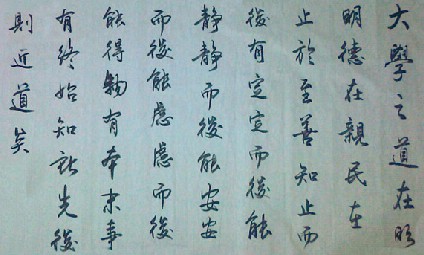 大學之道在明
明德在親民在
止於至善知止而
後有定定而後能
靜靜而後能安安
而後能慮慮而後
能得物有本末事
有終始知所先後
則近道矣